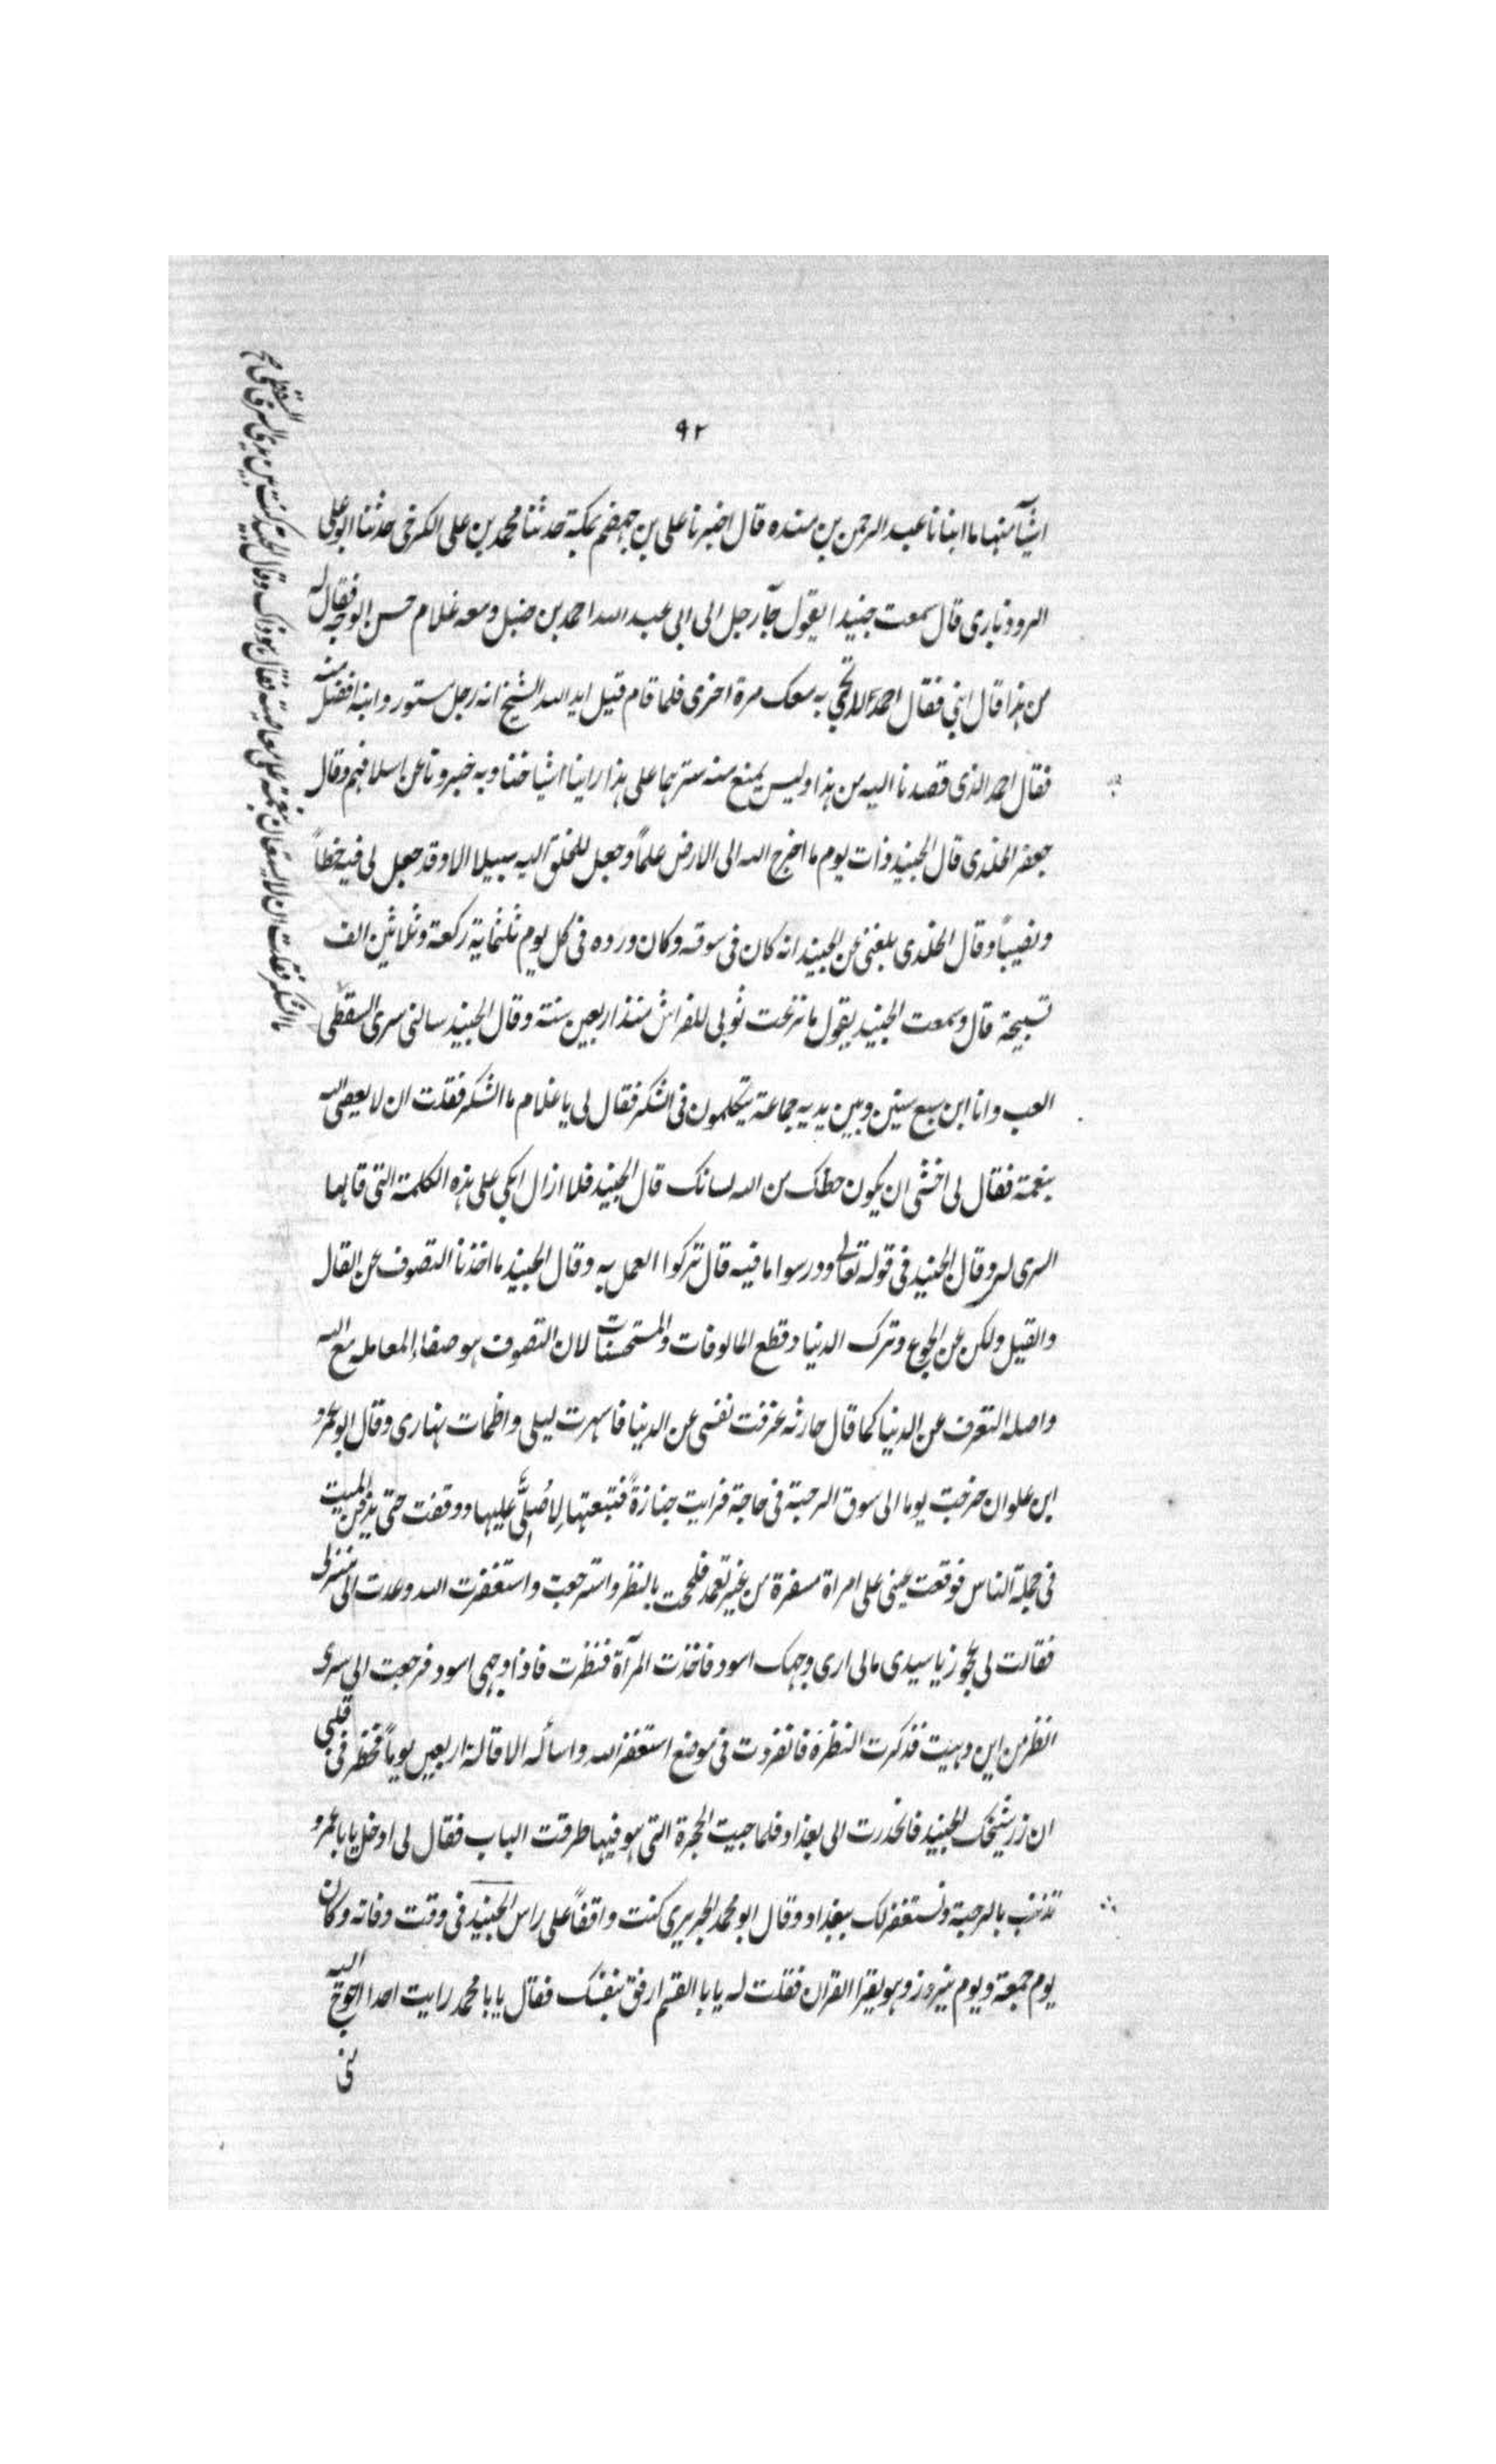 ٩٢
اشيآ منها ما انبانا عبد الرحمن بن منده قال اخبرنا على بن جهضم بمكة حدثنا محمد بن على الكرخى حدثنا ابو على
الرودبارى قال سمعت جنيدا يقول جآ رجل الى ابى عبد الله احمد بن حنبل ومعه غلام حسن الوجه فقال له
من هذا قال ابنى فقال احمد لا تجى به معك مرة اخرى فلما قام قيل ايد الله الشيخ انه رجل مستور وابنه افضل منه
فقال احمد الذى قصدنا اليه من هذا وليس يمنع منه سترهما على هذا راينا اشياخنا وبه خبرونا عن اسلافهم وقال
جعفر الخلدى قال الجنيد ذات يوم ما اخرج الله الى الارض علماً وجعل للخلق اليه سبيلا الا وقد جعل لى فيه حظاً
ونصيباً وقال الخلدى بلغنى عن الجنيد انه كان فى سوقه وكان ورده فى كل يوم ثلثماية ركعة وثلاثين الف
تسبيحة قال وسمعت الجنيد يقول ما نزعت ثوبى للفراش منذ اربعين سنة وقال الجنيد سالنى سرى السقطى
العب وانا ابن سبع سنين وبين يديه جماعة يتكلمون فى الشكر فقال لى يا غلام ما الشكر فقلت ان لا يعصى الله
بنعمة فقال لى اخشى ان يكون حظك من الله لسانك قال الجنيد فلا ازال ابكى على هذه الكلمة التى قالها
السرى لى وقال الجنيد فى قوله تعالى ودرسوا ما فيه قال تركوا العمل به وقال الجنيد ما اخذنا التصوف عن القال
والقيل ولكن عن الجوع وترك الدنيا وقطع المالوفات والمستحسنات لان التصوف هو صفاء المعامله مع الله
واصله التعرف عن الدنيا كما قال حارثه عزفت نفسى عن الدنيا فاسهرت ليلى واظمات نهارى وقال ابو عمرو
ابن علوان خرجت يوما الى سوق الرحبة فى حاجة فرايت جنازةً فتبعتها لِاُصَلِّىَ عليها ووقفت حتى يدفن الميت
فى جملة الناس فوقعت عينى على امراة مسفرة من غير تعمد فلمحت بالنظر واسترجعت واستغفرت الله وعدت الى منزلى
فقالت لى عجوز يا سيدى مالى ارى وجهك اسود فاخذت المرآة فنظرت فاذا وجهى اسود فرجعت الى سرى
انظر من اين دهيت فذكرت النظرة فانفردت فى موضع استغفر الله واسأله الاقالة اربعين يوماً فخطر فى قلبى
ان زر شيخك الجنيد فانحدرت الى بغداد فلما جيت الحجرة التى هو فيها طرقت الباب فقال لى ادخل يابا عمرو
تذنب بالرحبة ونستغفر لك ببغداد وقال ابو محمد الجريرى كنت واقفاً على راس الجنيد فى وقت وفاته وكان
يوم جمعة ويوم نيروز وهو يقرا القران فقلت له يابا القسم ارفق بنفسك فقال يابا محمد رايت احدا احوج اليه
منى
وقال الجنيد كنت بين يدى السرى السقطى
ما الشكر فقلت ان لا يستعان بنعمه على معاصيه فقال هو ذاك